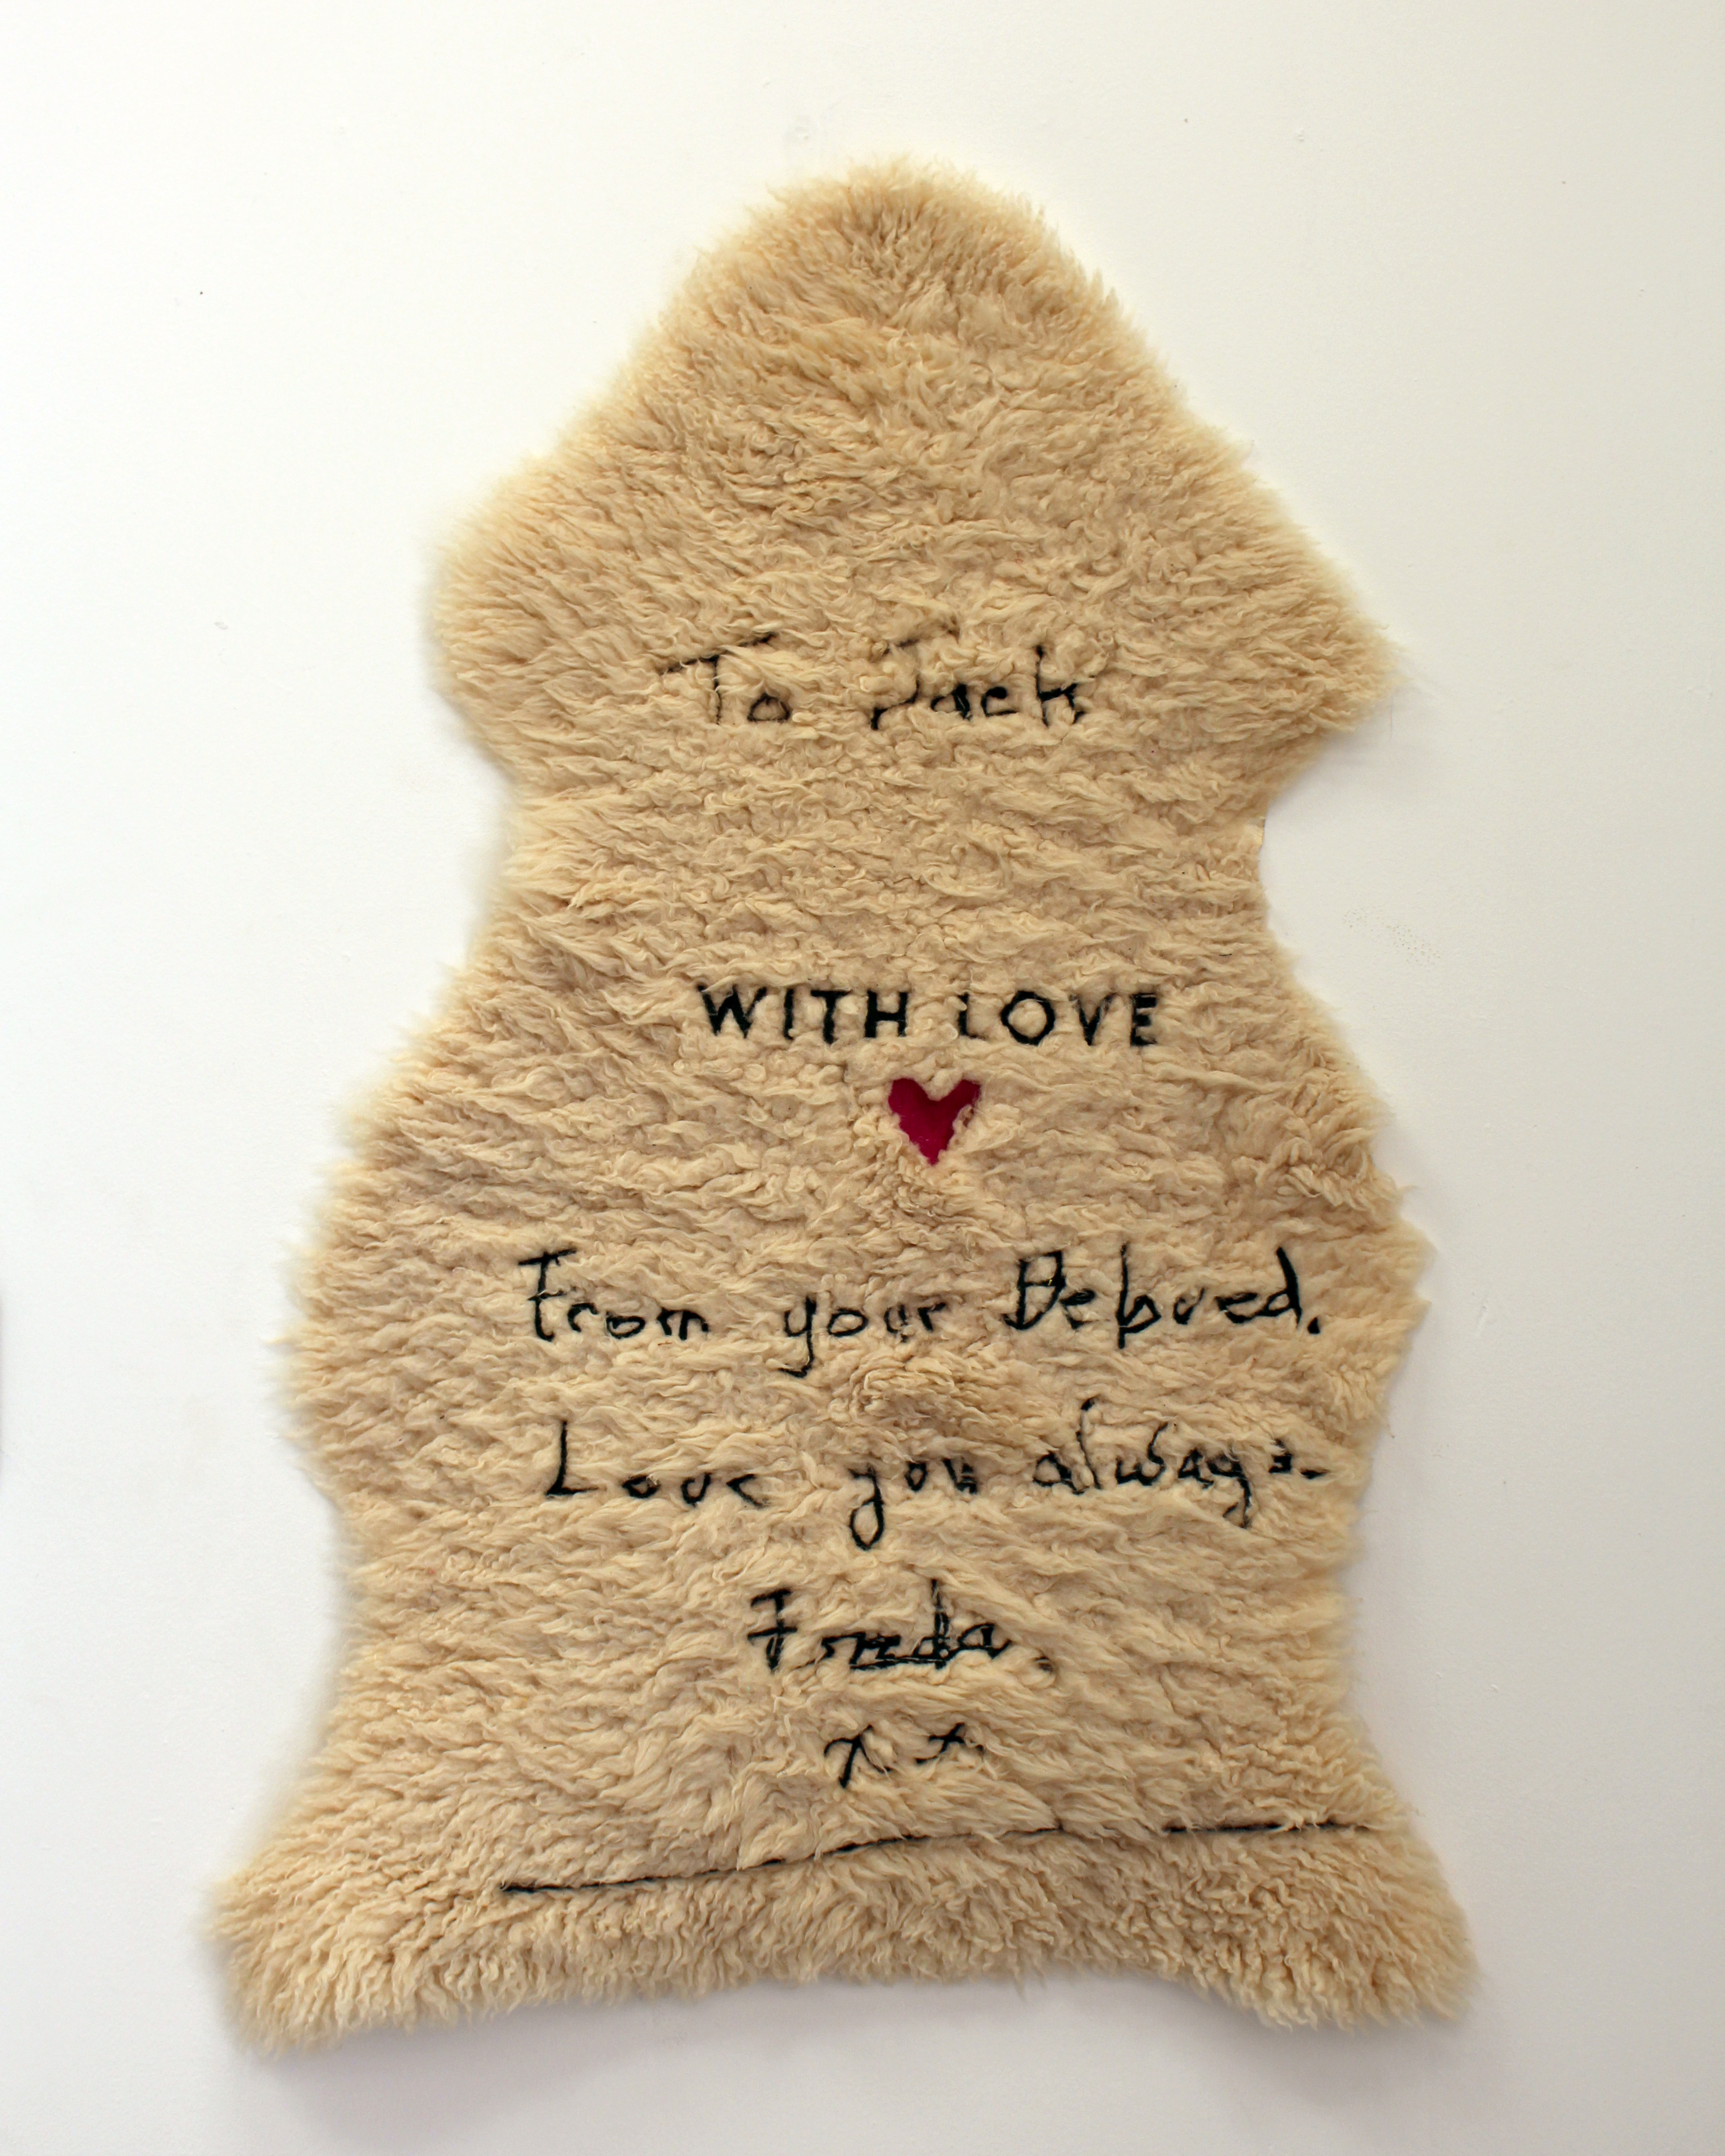 To Jack
WITH LOVE
From your Beloved.
Love you always.
Freda.
x x